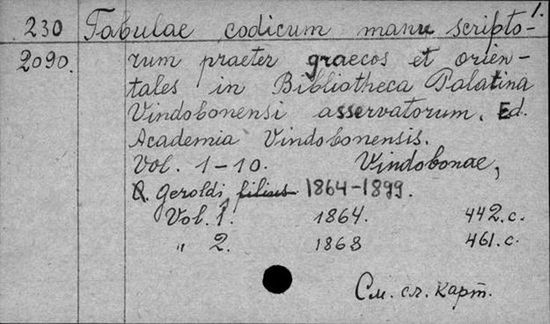 1.
230 Tabulae codicum manu scripto-
2090. rum praeter graecos et orien-
tales in Bibliotheca Palatina
Vindobonensi asservatorum. Ed.
Academia Vindobonensis.
Vol. 1-10. Vindobonae,
Geroldi filius 1864-1899.
Vol. 1. 1864. 442.c.
" 2. 1868 461.c.
См. сл. карт.